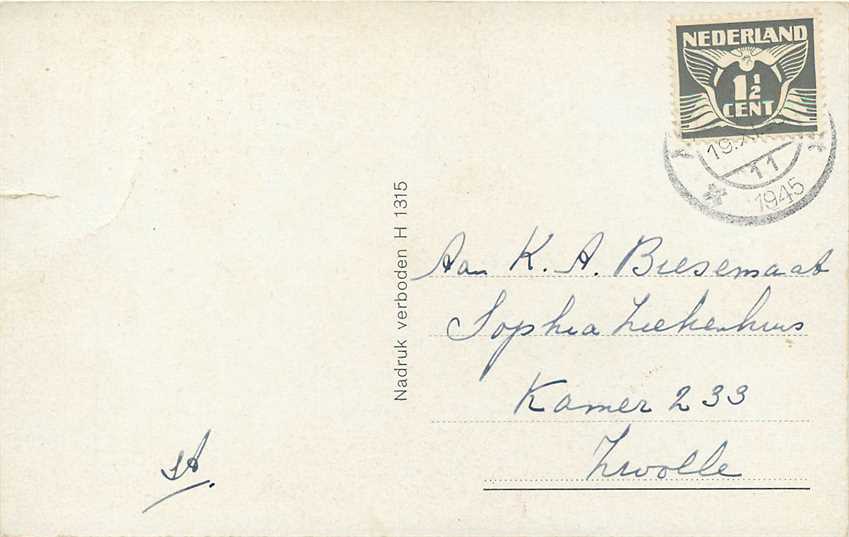 NEDERLAND
1½
CENT
11
1945
Nadruk verboden H 1315
Aan K. A. Biesemaat
Sophia Ziekenhuis
Kamer 233
Zwolle